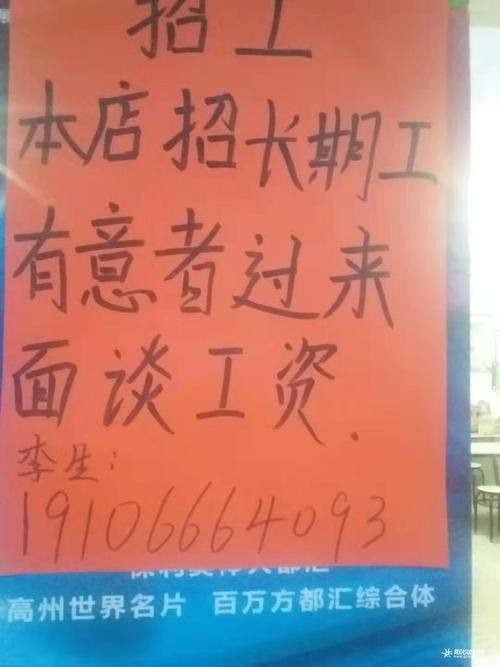 招工
本店招长期工
有意者过来
面谈工资.
李生:
19106664093
高州世界名片 百万方都汇综合体